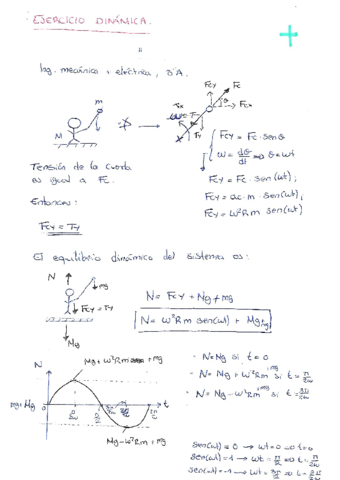 EJERCICIO DINÁMICA.
Ing. mecánica + eléctrica, 3ºA.
m
M
Fcy
Fc
Fcx
θ
Tx
T
Ty
Fcy = Fc · senθ
ω = dθ/dt => θ = ωt
Fcy = Fc · sen(ωt);
Fcy = ac · m · sen(ωt);
Fcy = ω²Rm sen(ωt)
Tensión de la cuerda
es igual a Fc.
Entonces:
Fcy = Ty
El equilibrio dinámico del sistema es:
N
mg
Fcy = Ty
Mg
N = Fcy + Mg + mg
N = ω²Rm sen(ωt) + Mg + mg
N
Mg + ω²Rm + mg
mg + Mg
0
t
Mg - ω²Rm + mg
· N = Mg si t = 0
· N = Mg + ω²Rm + mg si t = π/2ω
· N = Mg - ω²Rm + mg si t = 3π/2ω
sen(ωt) = 0 → ωt = 0 → t = 0
sen(ωt) = 1 → ωt = π/2 => t = π/2ω
sen(ωt) = -1 → ωt = 3π/2 => t = 3π/2ω